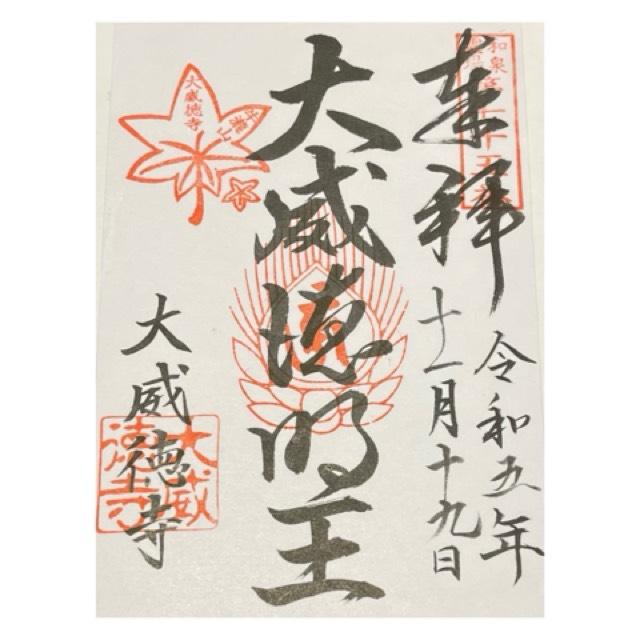 奉拝
令和五年
十一月十九日
大威徳明王
大威徳寺
大威徳寺
牛瀧山
大威徳寺